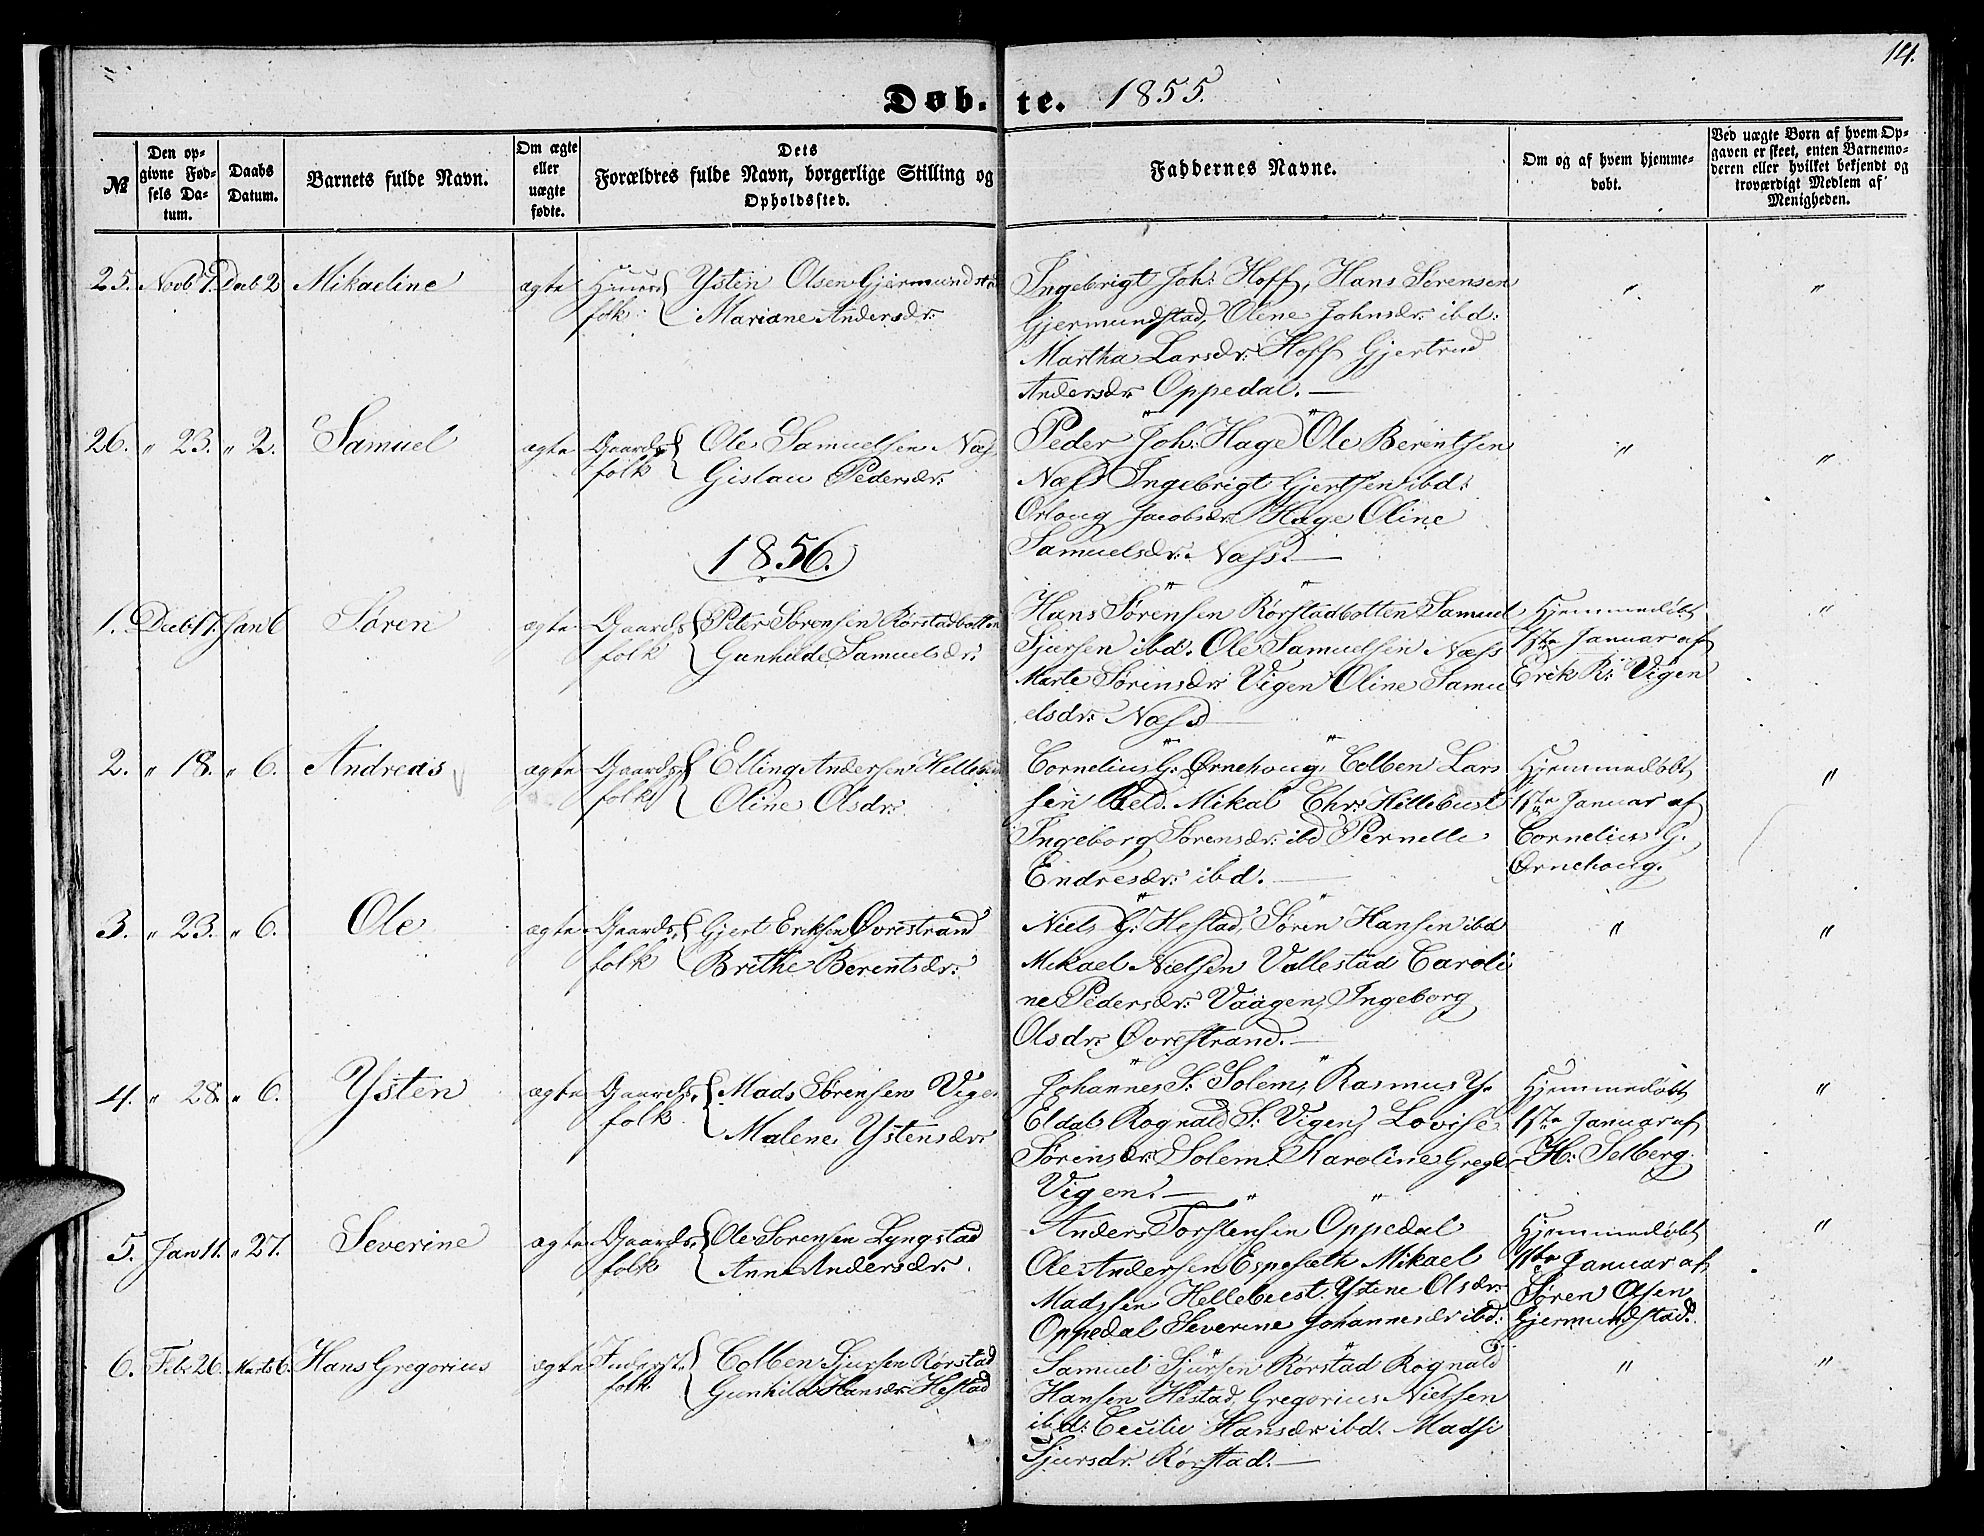 14.
Døb-te. 1855.
№
Den opgivne Fødsels Datum.
Daabs Datum.
Barnets fulde Navn.
Om ægte eller uægte fødte.
Dets Forældres fulde Navn, borgerlige Stilling og Opholdssted.
Faddernes Navne.
Om og af hvem hjemmedøbt.
Ved uægte Børn af hvem Opgaven er skeet, enten Barnemoderen eller hvilket bekjendt og troværdigt Medlem af Menigheden.
25. Novb 7. Decb 2 Mikaeline ægte Huusfolk Ysten Olsen Gjermundstad
Mariane Andersdr:
Ingebrigt Joh: Hoff, Hans Sørensen
Gjermundstad, Oline Johnsdr: ibd:
Martha Larsdr: Hoff Gjertrud
Andersdr Oppedal.
" "
26. " 23. " 2. Samuel ægte Gaardsfolk Ole Samuelsen Næss
Gislau Pedersdr:
Peder Joh: Hage Ole Berentsen
Næss Ingebrigt Gjertsen ibd:
Orloug Jacobsdr: Hage Oline
Samuelsdr: Næss.
" "
1856.
1. Decb 17. Jan 6 Søren ægte Gaardsfolk Peter Sørensen Rørstadbotten
Gunhilde Samuelsdr:
Hans Sørensen Rørstadbotten Samuel
Sjursen ibd. Ole Samuelsen Næss
Marte Sørensdr: Vigen Oline Samu
elsdr: Næss
Hjemmedøbt
1ste Januar af
Erik R: Vigen
"
2. " 18. " 6. Andreas ægte Gaardsfolk Elling Andersen Hellebust
Oline Olsdr:
Cornelius G: Ørnehoug, Colben Lars
sen ibid. Mikal Chr: Hellebust
Ingeborg Sørensdr: ibd Pernelle
Endresdr: ibd.
Hjemmedøbt
1ste Januar af
Cornelius G.
Ørnehoug.
"
3. " 23. " 6. Ole ægte Gaardsfolk Gjert Eriksen Øvrestrand
Brithe Berentsdr:
Niels G: Hestad, Søren Hansen ibd
Mikael Nielsen Vallestad Caroli
ne Pedersdr: Vaagen, Ingeborg
Olsdr: Øvrestrand.
" "
4. " 28. " 6. Ysten ægte Gaardsfolk Mads Sørensen Vigen
Malene Ystensdr:
Johannes S: Solem, Rasmus Y.
Eldal Rognald S: Vigen, Lovise
Sørensdr: Solem. Karoline Greg
Vigen.
Hjemmedøbt
1ste Januar af
H: Selberg.
"
5. Jan 11. " 27. Severine ægte Gaardsfolk Ole Sørensen Lyngstad
Anna Andersdr.
Anders Torstensen Oppedal
Ole Andersen Espeseth Mikael
Madssen Hellebust. Ystene Olsdr:
Oppedal Severine Johannesdr ibd:
Hjemmedøbt
Januar af
Søren Olsen
Gjermundstad.
"
6. Feb: 26. Marts 6. Hans Gregorius ægte Inderstfolk Colben Sjursen Rørstad
Gunhild Hansdr: Hestad
Samuel Sjursen Rørstad Rognald
Hansen Hestad, Gregorius Nielsen
ibd: Cecilie Hansdr ibd. Madsi
Sjursdr. Rørstad.
" "